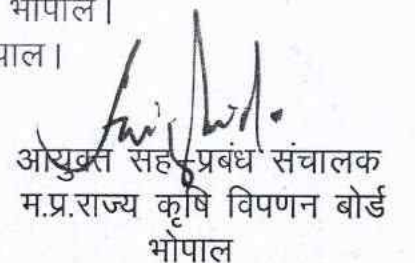 भोपाल।
पाल।
आयुक्त सह प्रबंध संचालक
म.प्र.राज्य कृषि विपणन बोर्ड
भोपाल